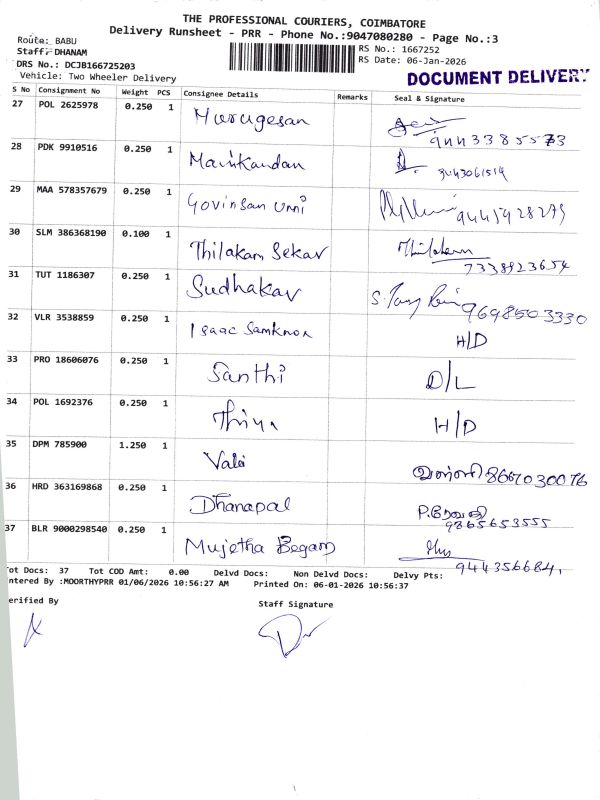 THE PROFESSIONAL COURIERS, COIMBATORE
Delivery Runsheet - PRR - Phone No.:9047080280 - Page No.:3
Route: BABU
Staff: DHANAM
DRS No.: DCJB166725203
Vehicle: Two Wheeler Delivery
RS No.: 1667252
RS Date: 06-Jan-2026
DOCUMENT DELIVERY
S No Consignment No Weight PCS Consignee Details Remarks Seal & Signature
27 POL 2625978 0.250 1 Murugesan
28 PDK 9910516 0.250 1 Manikandan 9443061519
29 MAA 578357679 0.250 1 Govinsan Unni 9445928279
30 SLM 386368190 0.100 1 Thilakam Sekar Thilakam
7338923654
31 TUT 1186307 0.250 1 Sudhakar 9698503330
32 VLR 3538859 0.250 1 Isaac Samknon H/D
33 PRO 18606076 0.250 1 Santhi D/L
34 POL 1692376 0.250 1 Thiya H/D
35 DPM 785900 1.250 1 Valli வள்ளி 8667030076
36 HRD 363169868 0.250 1 Dhanapal
9865653555
37 BLR 9000298540 0.250 1 Mujetha Begam
9443566841
Tot Docs: 37 Tot COD Amt: 0.00 Delvd Docs: Non Delvd Docs: Delvy Pts:
ntered By :MOORTHYPRR 01/06/2026 10:56:27 AM Printed On: 06-01-2026 10:56:37
erified By
Staff Signature